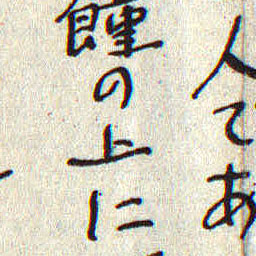 人であ
饉の上に